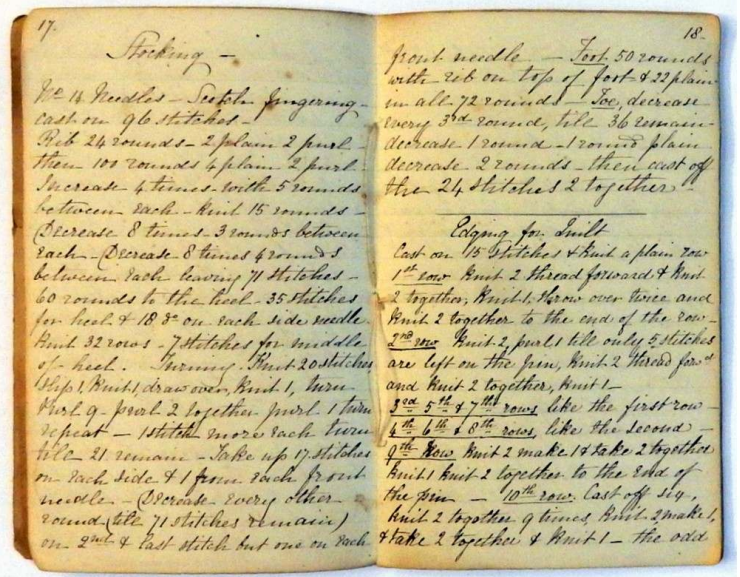 17.
Stocking -
No 14 Needles - Scotch fingering -
cast on 96 stitches -
Rib 24 rounds - 2 plain 2 purl -
then 100 rounds 4 plain 2 purl -
Increase 4 times - with 5 rounds
between each - knit 15 rounds -
Decrease 8 times - 3 rounds between
each - Decrease 8 times 4 rounds
between each leaving 71 stitches -
60 rounds to the heel - 35 stitches
for heel & 18 on each side needle
Knit 32 rows - 7 stitches for middle
of heel. Turning. Knit 20 stitches
slip 1, knit 1, draw over, knit 1, turn
Purl 9 - purl 2 together purl 1 turn
repeat - 1 stitch more each turn
till 21 remain - Take up 17 stitches
on each side & 1 from each front
needle - Decrease every other
round (till 71 stitches remain)
on 2nd & last stitch but one on each
18-
front needle - Foot 50 rounds
with rib on top of foot & 22 plain
in all 72 rounds - Toe, decrease
every 3rd round, till 36 remain
decrease 1 round - 1 round plain
decrease 2 rounds - then cast off
the 24 stitches 2 together -
Edging for Quilt
Cast on 15 stitches & knit a plain row
1st row Knit 2 thread forward & knit
2 together, Knit 1, throw over twice and
knit 2 together to the end of the row -
2nd row Knit 2, purl 1 till only 5 stitches
are left on the pin, Knit 2 thread forwd
and knit 2 together, knit 1 -
3rd 5th & 7th rows like the first row -
4th 6th & 8th rows, like the second -
9th Row Knit 2 make 1 & take 2 together
knit 1 knit 2 together to the end of
the pin - 10th row. Cast off six,
knit 2 together 9 times, Knit 2, make 1,
& take 2 together & knit 1 - the odd